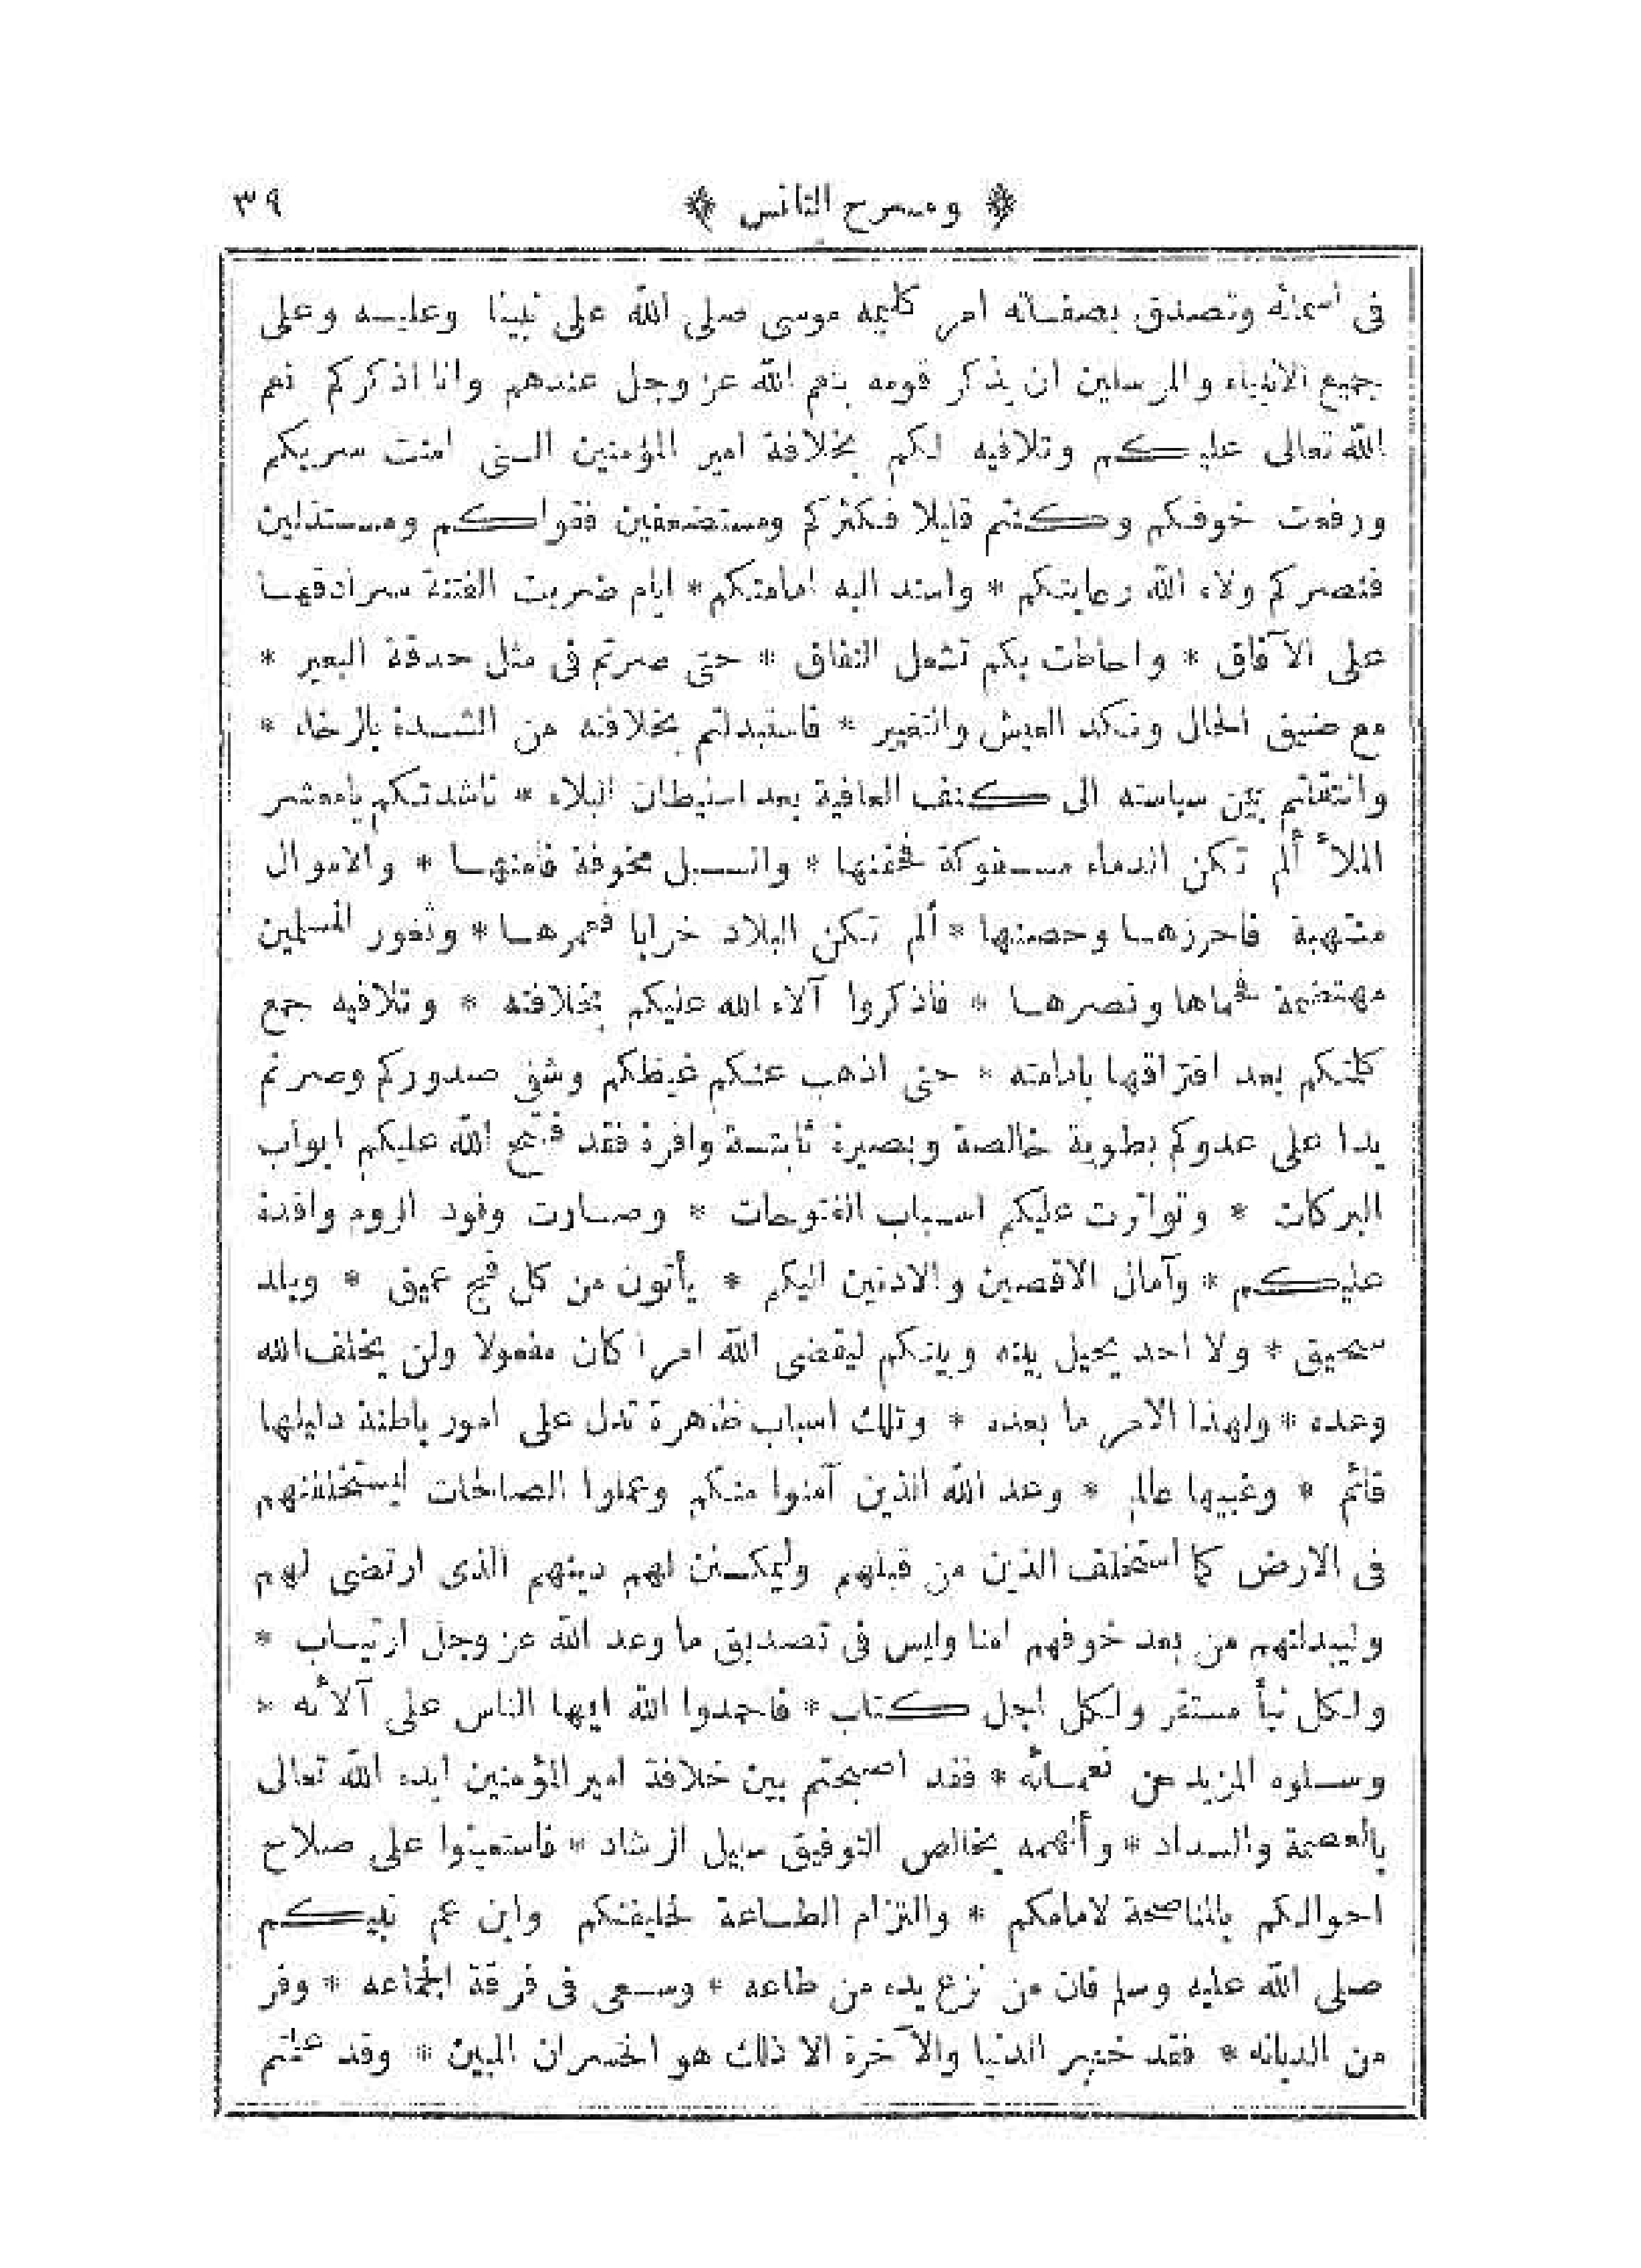 ﴿ ومسرح التانس ﴾ ٣٩
فى اسمائه وتصدق بصفاته امر كليمه موسى صلى الله على نبينا وعليه وعلى
جميع الانبياء والمرسلين ان يذكر قومه بنعم الله عز وجل عندهم وانا اذكركم نعم
الله تعالى عليكم وتلافيه لكم بخلافة امير المؤمنين التى امنت سربكم
ورفعت خوفكم وكنتم قليلا فكثركم ومستضعفين فقواكم ومستذلين
فنصركم ولاه الله رعايتكم * واسند اليه امامتكم * ايام ضربت الفتنة سرادقها
على الآفاق * واحاطت بكم تشعل النفاق * حتى صرتم فى مثل حدقة البعير *
مع ضيق الحال ونكد العيش والتغيير * فاستبدلتم بخلافته من الشدة بالرخاء *
وانتقلتم بيمن سياسته الى كنف العافية بعد استيطان البلاء * ناشدتكم يامعشر
الملأ ألم تكن الدماء مسفوكة فحقنها * والسبل مخوفة فأمنها * والاموال
منتهبة فاحرزها وحصنها * ألم تكن البلاد خرابا فعمرها * وثغور المسلمين
مهتضمة فحماها ونصرها * فاذكروا آلاء الله عليكم بخلافته * وتلافيه جمع
كلمتكم بعد افتراقها بامامته * حتى اذهب عنكم غيظكم وشفى صدوركم وصرتم
يدا على عدوكم بطوية خالصة وبصيرة ثابتة وافرة فقد فتح الله عليكم ابواب
البركات * وتواترت عليكم اسباب الفتوحات * وصارت وفود الروم وافدة
عليكم * وآمال الاقصين والادنين اليكم * يأتون من كل فج عميق * وبلد
سحيق * ولا احد يحيل بينه وبينكم ليقضى الله امرا كان مفعولا ولن يخلف الله
وعده * ولهذا الامر ما بعده * وتلك اسباب ظاهرة تدل على امور باطنة دليلها
قائم * وغيبها عالم * وعد الله الذين آمنوا منكم وعملوا الصالحات ليستخلفنهم
فى الارض كما استخلف الذين من قبلهم وليمكنن لهم دينهم الذى ارتضى لهم
وليبدلنهم من بعد خوفهم امنا وليس فى تصديق ما وعد الله عز وجل ارتياب *
ولكل نبأ مستقر ولكل اجل كتاب * فاحمدوا الله ايها الناس على آلائه *
وسلوه المزيد من نعمائه * فقد اصبحتم بين خلافة امير المؤمنين ايده الله تعالى
بالعصمة والسداد * وألهمه بخالص التوفيق سبيل الرشاد * فاستعينوا على صلاح
احوالكم بالمناصحة لامامكم * والتزام الطاعة لخليفتكم وابن عم نبيكم
صلى الله عليه وسلم فان من نزع يده من طاعه * وسعى فى فرقة الجماعه * وفر
من الديانه * فقد خسر الدنيا والآخرة الا ذلك هو الخسران المبين * وقد علمتم